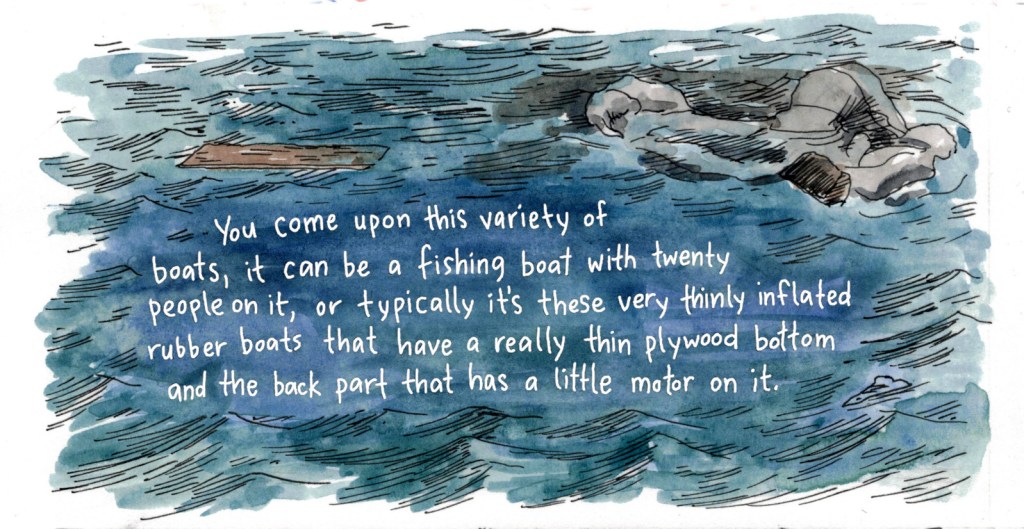 You come upon this variety of
boats, it can be a fishing boat with twenty
people on it, or typically it's these very thinly inflated
rubber boats that have a really thin plywood bottom
and the back part that has a little motor on it.